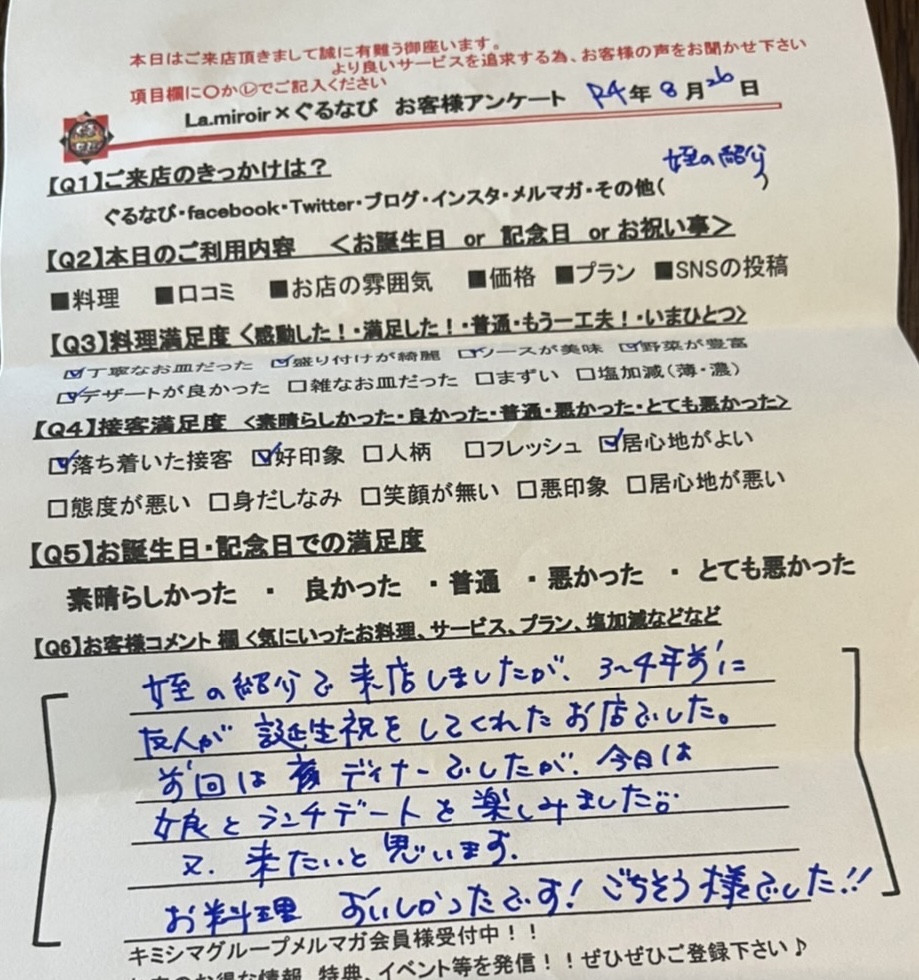 本日はご来店頂きまして誠に有難う御座います。
より良いサービスを追求する為、お客様の声をお聞かせ下さい
項目欄に〇か㋹でご記入ください
La.miroir×ぐるなび お客様アンケート R4年 8月 26日
【Q1】ご来店のきっかけは？
ぐるなび・facebook・Twitter・ブログ・インスタ・メルマガ・その他( 姪の紹介 )
【Q2】本日のご利用内容 ＜お誕生日 or 記念日 or お祝い事＞
■料理 ■口コミ ■お店の雰囲気 ■価格 ■プラン ■SNSの投稿
【Q3】料理満足度＜感動した！・満足した！・普通・もう一工夫！・いまひとつ＞
☑丁寧なお皿だった ☑盛り付けが綺麗 ☑ソースが美味 ☑野菜が豊富
☑デザートが良かった □雑なお皿だった □まずい □塩加減(薄・濃)
【Q4】接客満足度 ＜素晴らしかった・良かった・普通・悪かった・とても悪かった＞
☑落ち着いた接客 ☑好印象 □人柄 □フレッシュ ☑居心地がよい
□態度が悪い □身だしなみ □笑顔が無い □悪印象 □居心地が悪い
【Q5】お誕生日・記念日での満足度
素晴らしかった ・ 良かった ・普通 ・悪かった ・とても悪かった
【Q6】お客様コメント欄＜気にいったお料理、サービス、プラン、塩加減などなど
姪の紹介で来店しましたが、3〜4年前に
友人が誕生祝をしてくれたお店でした。
前回は ディナーでしたが、今日は
娘とランチデートを楽しみました。
又、来たいと思います。
お料理 おいしかったです！ごちそう様でした!!
キミシマグループメルマガ会員様受付中！！
お得な情報、特典、イベント等を発信！！ぜひぜひご登録下さい♪